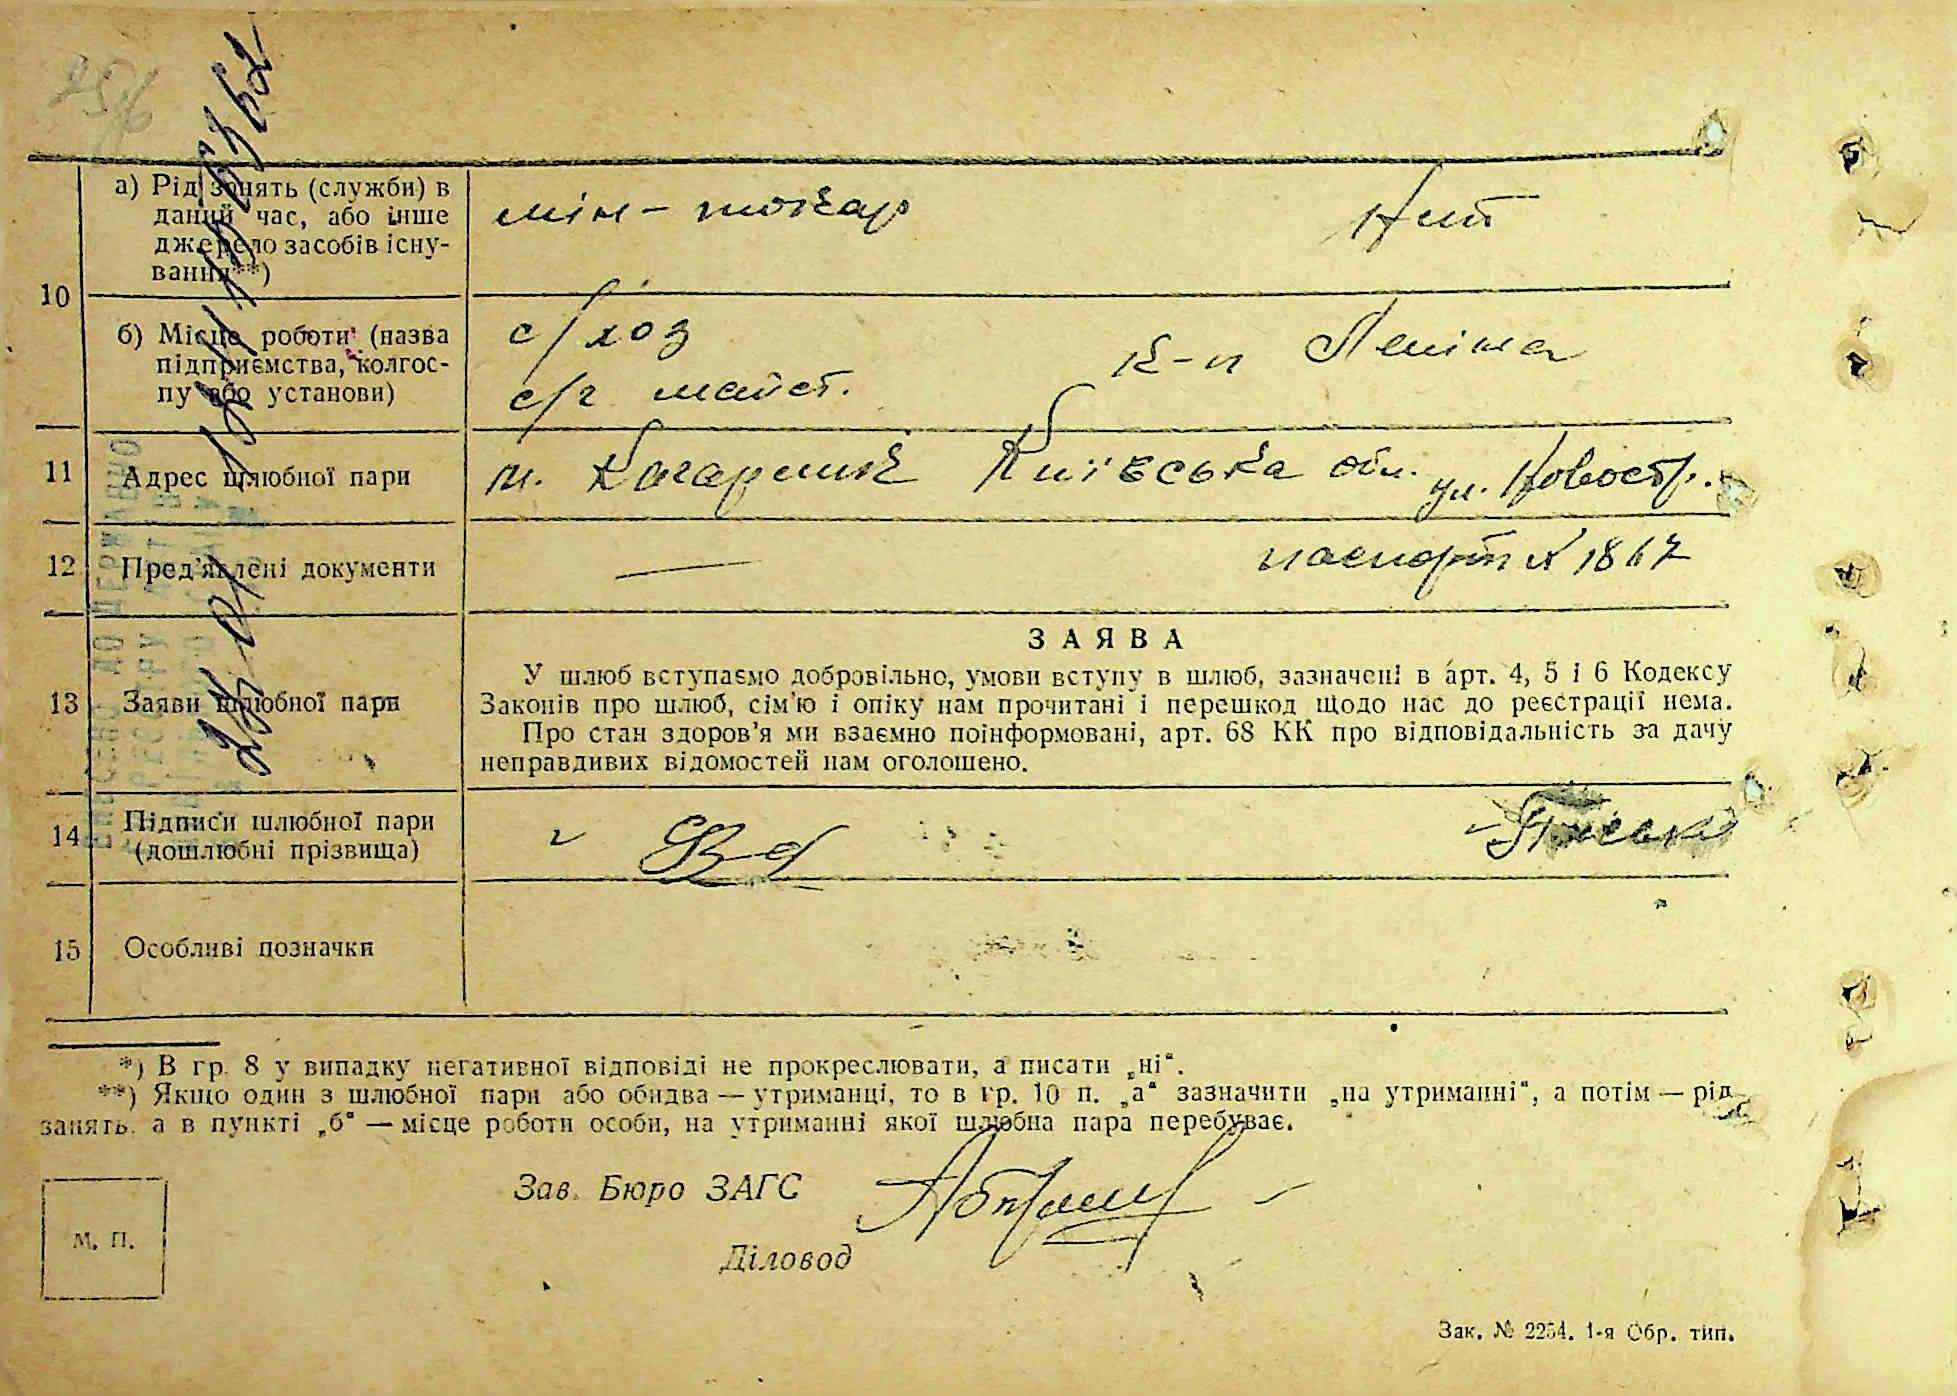 10
а) Рід зонять (служби) в
даний час, або інше
джерело засобів існу-
вання**)
токар
б) Місце роботи (назва
підприємства, колгос-
пу або установи)
с/хоз
к-п Леніна
с/г майст.
11 Адрес шлюбної пари
м. Кагарлик Київська обл. ул. Новостр.
12 Пред'явлені документи
— паспорт № 1867
ЗАЯВА
13 Заяви шлюбної пари
У шлюб вступаємо добровільно, умови вступу в шлюб, зазначені в арт. 4, 5 і 6 Кодексу
Законів про шлюб, сім'ю і опіку нам прочитані і перешкод щодо нас до реєстрації нема.
Про стан здоров'я ми взаємно поінформовані, арт. 68 КК про відповідальність за дачу
неправдивих відомостей нам оголошено.
14 Підписи шлюбної пари
(дошлюбні прізвища)
15 Особливі позначки
*) В гр. 8 у випадку негативної відповіді не прокреслювати, а писати „ні“.
**) Якщо один з шлюбної пари або обидва — утриманці, то в гр. 10 п. „а“ зазначити „на утриманні“, а потім — рід
занять, а в пункті „б“ — місце роботи особи, на утриманні якої шлюбна пара перебуває.
Зав. Бюро ЗАГС
М. П.
Діловод
Зак. № 2254. 1-я Обр. тип.